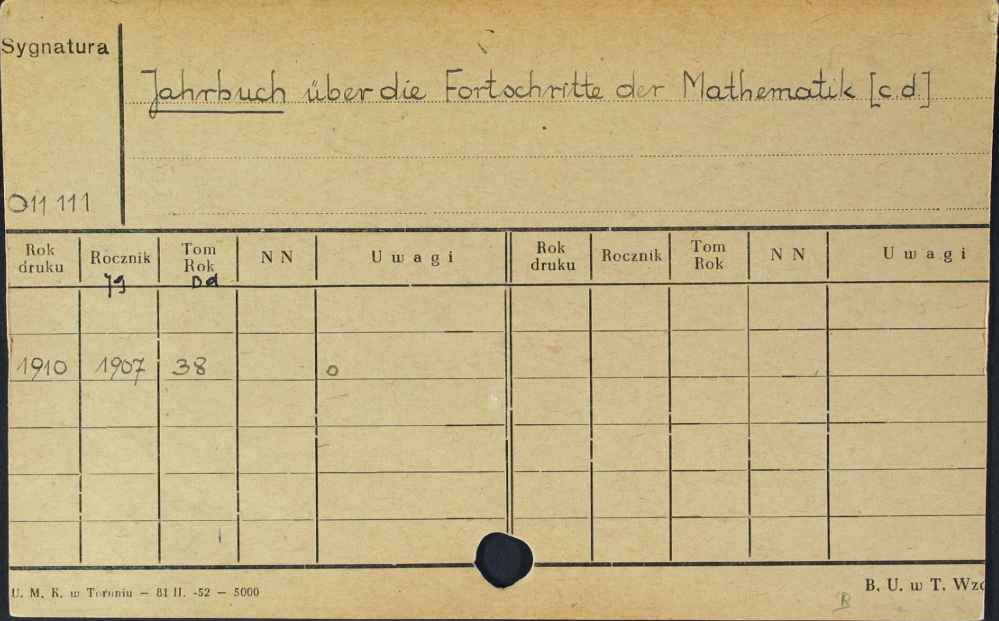 Sygnatura
Jahrbuch über die Fortschritte der Mathematik [c.d.]
011 111
Rok druku Rocznik Tom Rok NN Uwagi Rok druku Rocznik Tom Rok NN Uwagi
Jg Bd
1910 1907 38 o
U. M. K. w Toruniu — 81 II. -52 — 5000
B. U. w T. Wzo
B